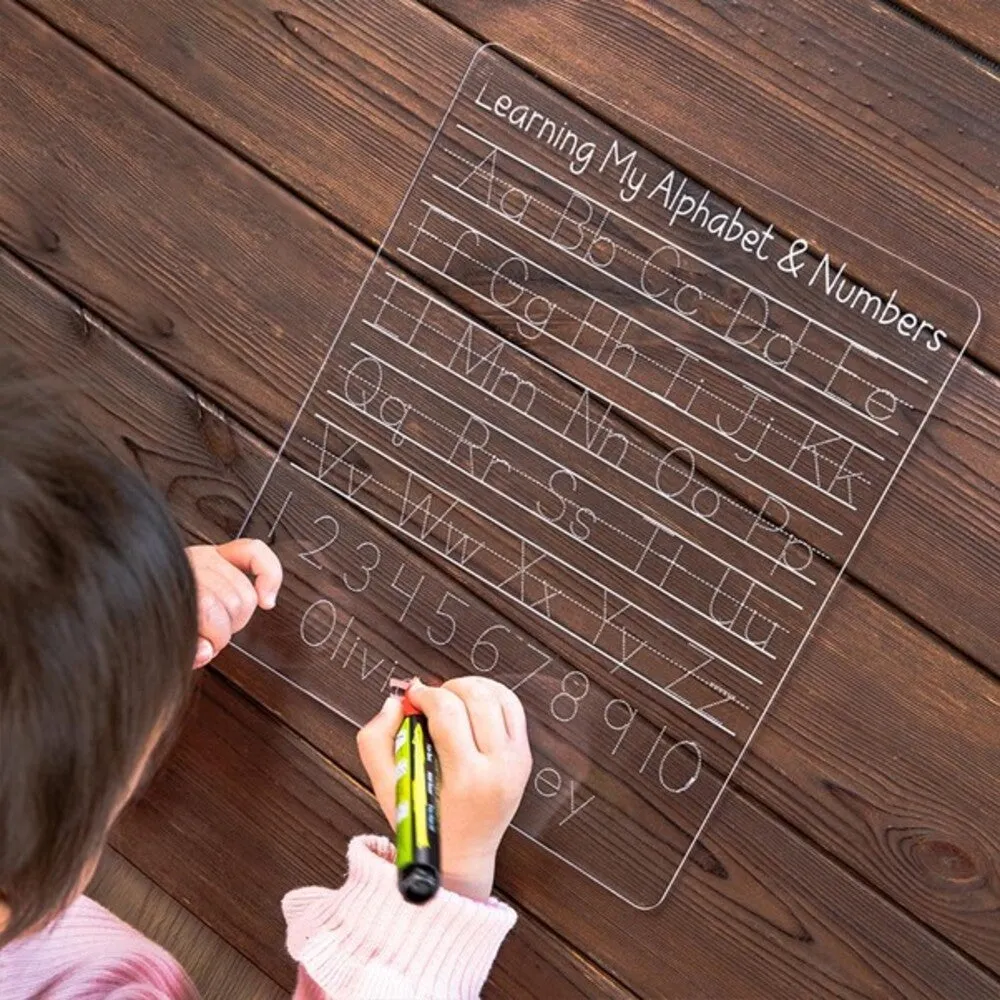 Learning My Alphabet & Numbers
Aa Bb Cc Dd Ee
Ff Gg Hh Ii Jj Kk
Ll Mm Nn Oo Pp
Qq Rr Ss Tt Uu
Vv Ww Xx Yy Zz
1 2 3 4 5 6 7 8 9 10